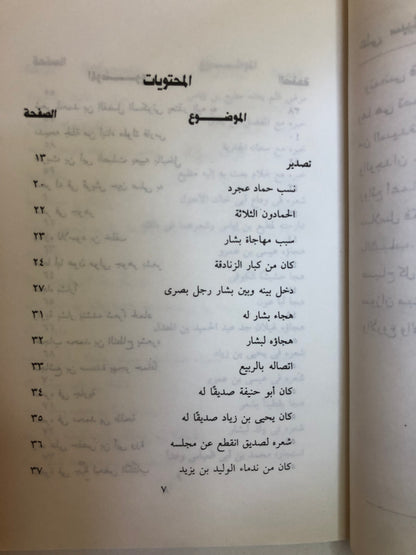 المحتويات
الموضــوع الصفحة
تصدير ١٣
نسب حماد عجرد ٢٠
الحمادون الثلاثة ٢٢
سبب مهاجاة بشار ٢٣
كان من كبار الزنادقة ٢٤
دخل بينه وبين بشار رجل بصرى ٢٧
هجاء بشار له ٣١
هجاؤه لبشار ٣٢
اتصاله بالربيع ٣٣
كان أبو حنيفة صديقًا له ٣٤
كان يحيى بن زياد صديقًا له ٣٥
شعره لصديق انقطع عن مجلسه ٣٦
كان من ندماء الوليد بن يزيد ٣٧
٧